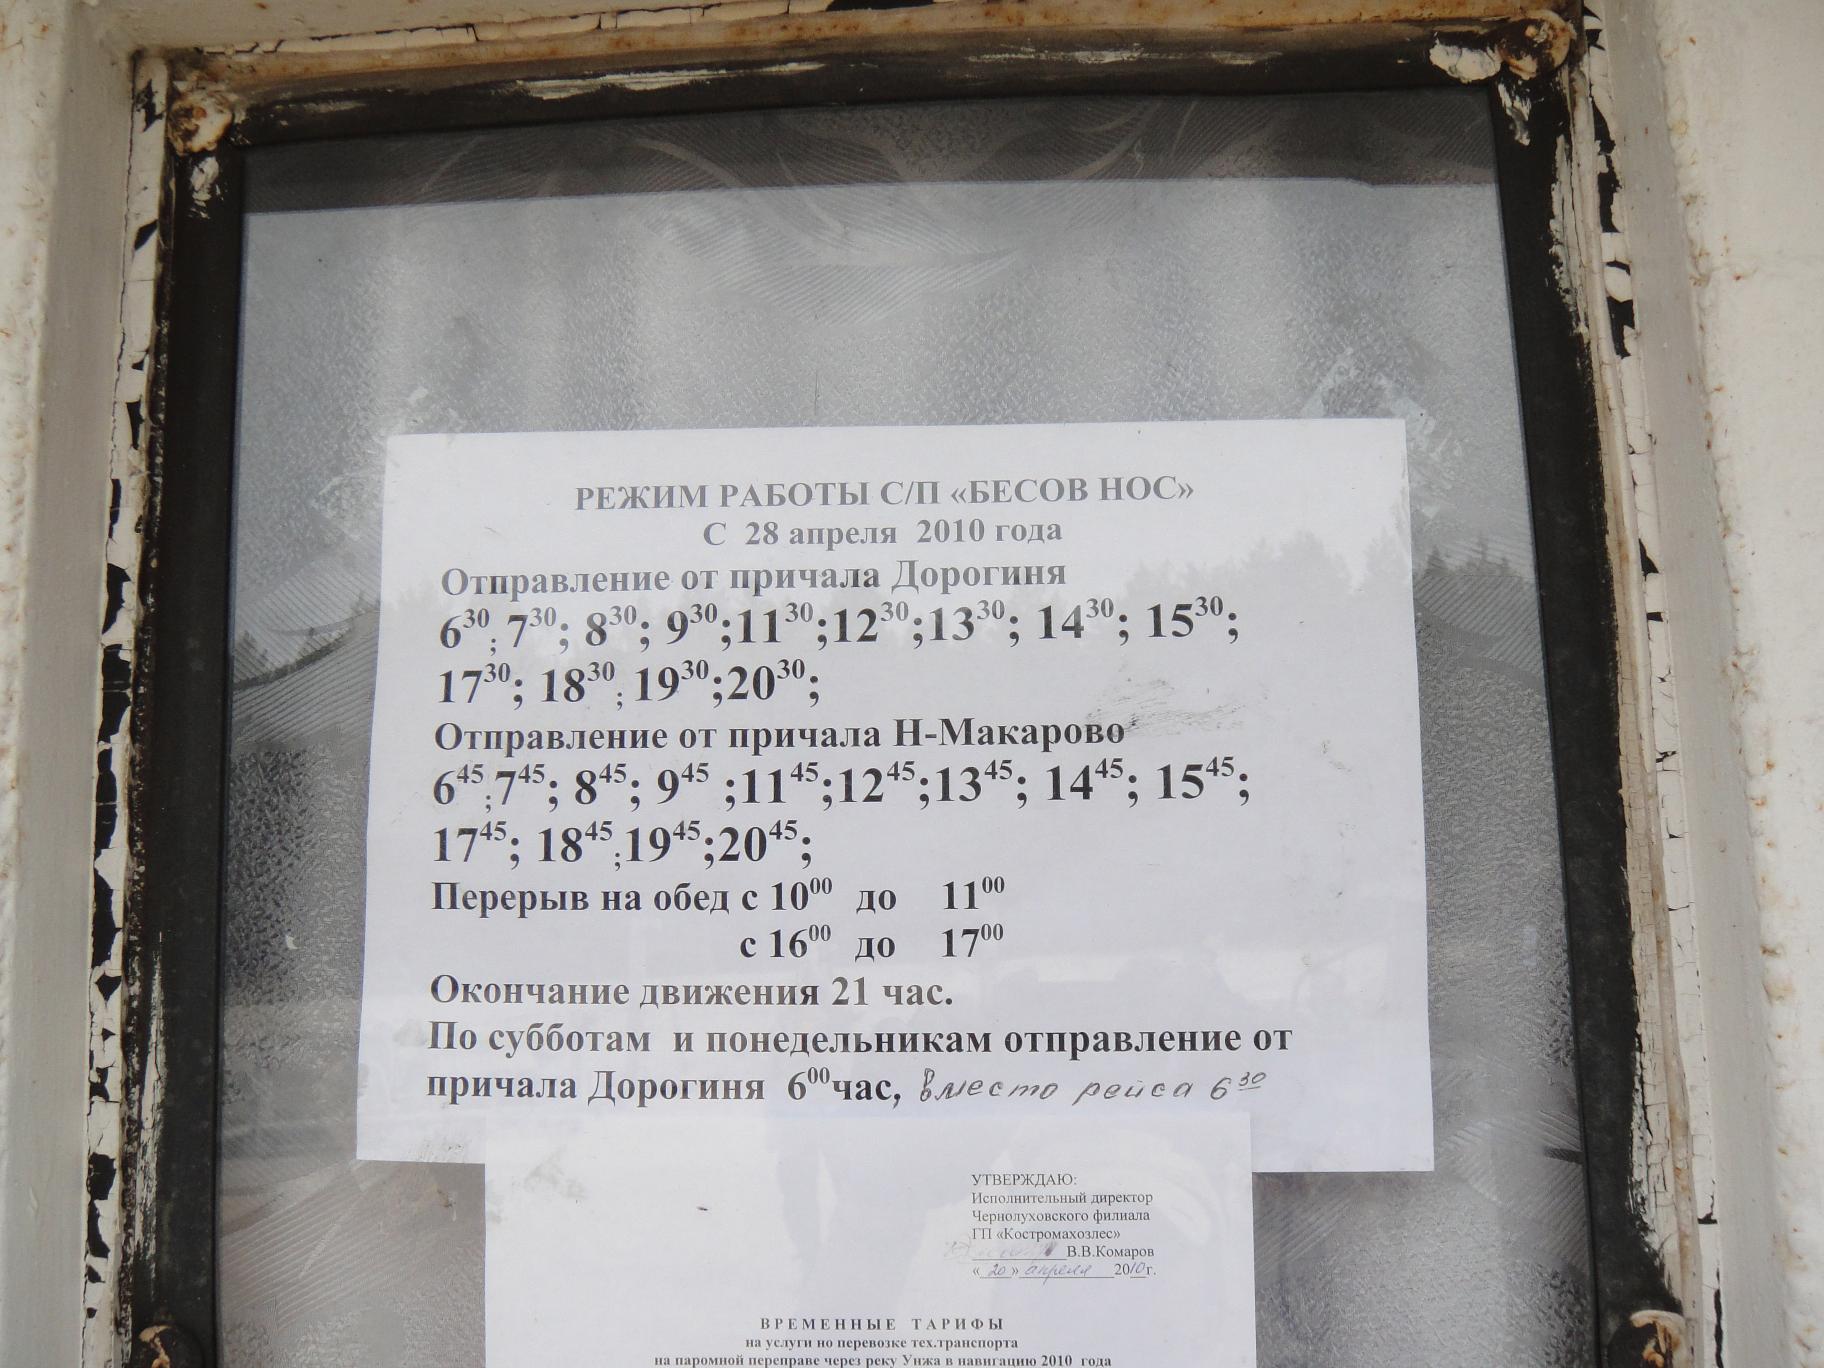 РЕЖИМ РАБОТЫ С/П «БЕСОВ НОС»
С 28 апреля 2010 года
Отправление от причала Дорогиня
6³⁰; 7³⁰; 8³⁰; 9³⁰;11³⁰;12³⁰;13³⁰; 14³⁰; 15³⁰;
17³⁰; 18³⁰; 19³⁰;20³⁰;
Отправление от причала Н-Макарово
6⁴⁵;7⁴⁵; 8⁴⁵; 9⁴⁵ ;11⁴⁵;12⁴⁵;13⁴⁵; 14⁴⁵; 15⁴⁵;
17⁴⁵; 18⁴⁵;19⁴⁵;20⁴⁵;
Перерыв на обед с 10⁰⁰ до 11⁰⁰
с 16⁰⁰ до 17⁰⁰
Окончание движения 21 час.
По субботам и понедельникам отправление от
причала Дорогиня 6⁰⁰час, вместо рейса 6³⁰
УТВЕРЖДАЮ:
Исполнительный директор
Чернолуховского филиала
ГП «Костромахозлес»
В.В.Комаров
«20» апреля 2010г.
ВРЕМЕННЫЕ ТАРИФЫ
на услуги но перевозке тех.транспорта
на паромной переправе через реку Унжа в навигацию 2010 года